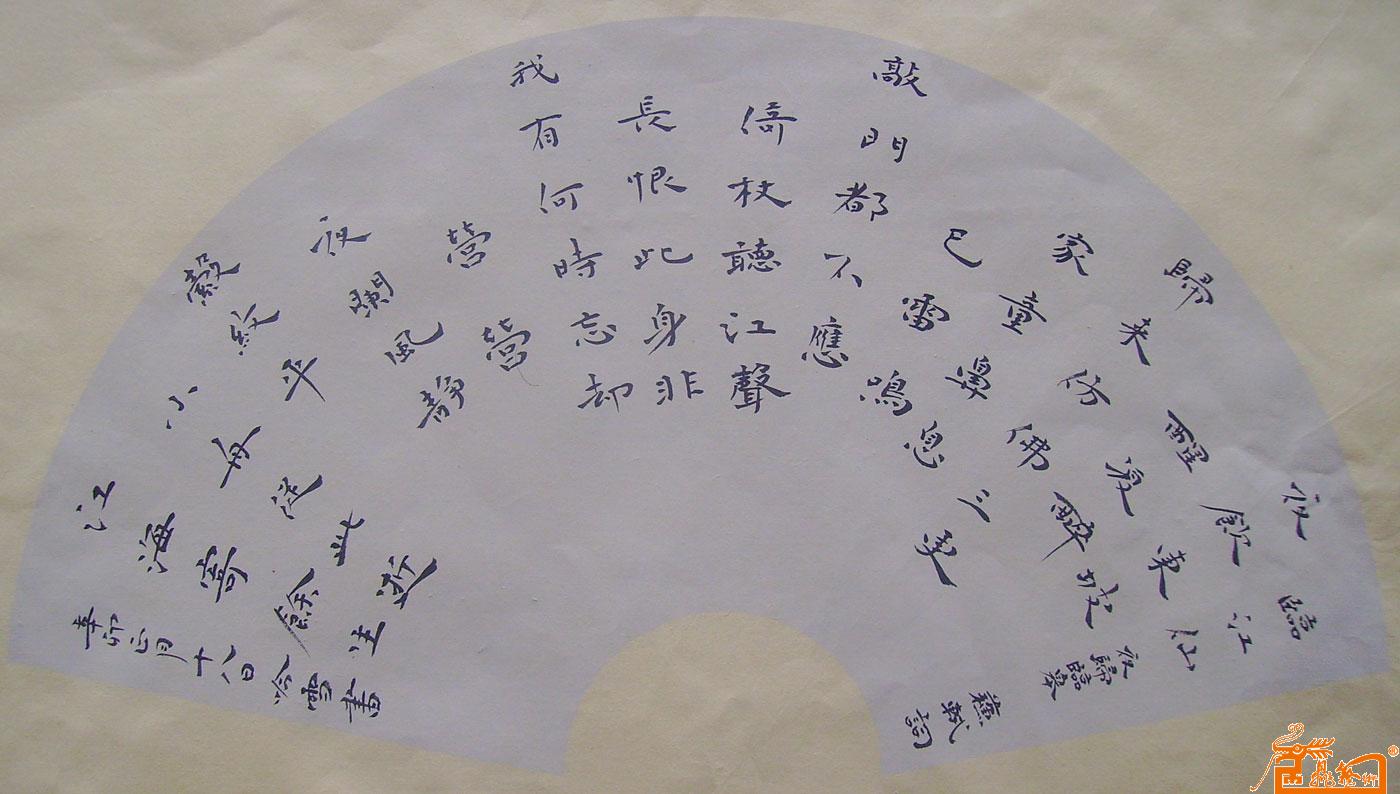 臨江仙
夜歸臨皋
蘇軾詞
夜飲東坡
醒復醉
歸来仿佛三更
家童鼻息
已雷鳴
敲門都不應
倚杖聽江聲
長恨此身非
我有何時忘却
營營
夜闌風靜
縠紋平
小舟從此逝
江海寄餘生
辛卯正月十八日吟雪書